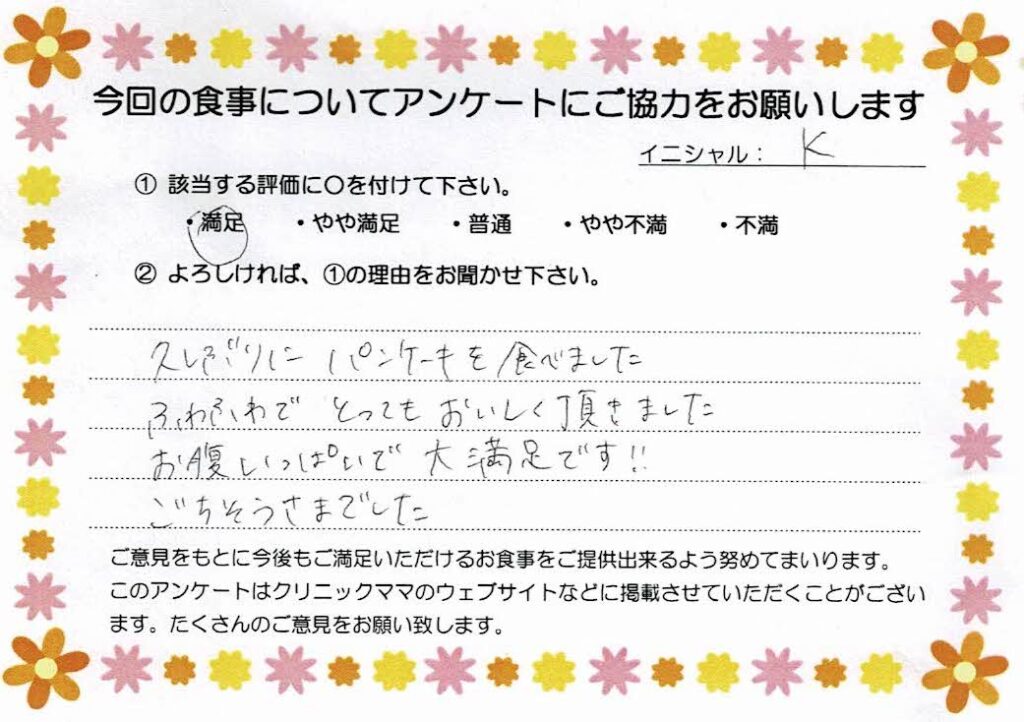 今回の食事についてアンケートにご協力をお願いします
イニシャル： K
① 該当する評価に〇を付けて下さい。
・満足 ・やや満足 ・普通 ・やや不満 ・不満
② よろしければ、①の理由をお聞かせ下さい。
久しぶりに パンケーキを食べました
ふわふわで とっても おいしく頂きました
お腹いっぱいで 大満足です!!
ごちそうさまでした
ご意見をもとに今後もご満足いただけるお食事をご提供出来るよう努めてまいります。
このアンケートはクリニックママのウェブサイトなどに掲載させていただくことがござい
ます。たくさんのご意見をお願い致します。